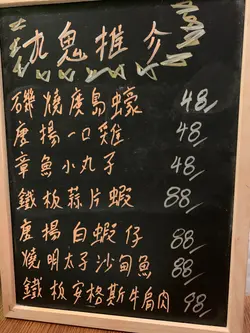 九鬼推介
磯燒廣島蠔 48
唐揚一口雞 48
章魚小丸子 48
鐵板蒜片蝦 88
唐揚白蝦仔 88
燒明太子沙甸魚 88
鐵板安格斯牛肩肉 98